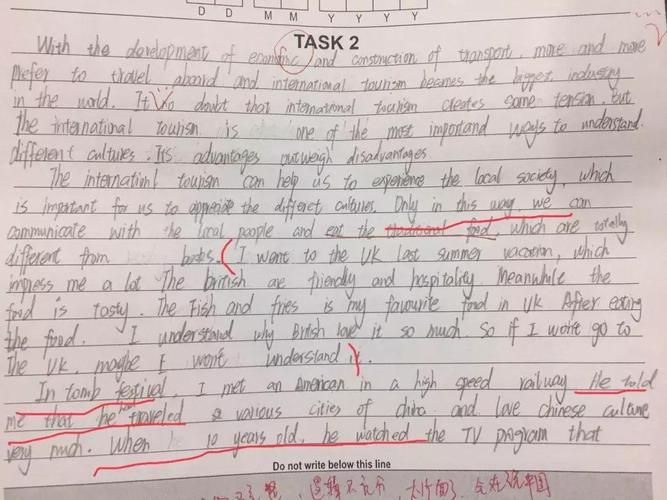 D D M M Y Y Y Y
TASK 2
With the development of economic and construction of transport, more and more
prefer to travel aboard and international tourism becomes the biggest industry
in the world. It no doubt that international tourism creates some tension, but
the international tourism is one of the most importand ways to understand
different cultures. Its advantages outweigh disadvantages
The internationl tourism can help us to experience the local society, which
is important for us to appreciate the differet cultures. Only in this way, we can
communicate with the local people and eat the traditional food, which are totally
different from books. I went to the UK last summer vacation, which
impress me a lot The british are friendly and hospitality. Meanwhile the
food is tasty. The Fish and fries is my favourite food in UK After eating
the food. I understand why British love it so much. So if I won't go to
The UK, maybe I won't understand it.
In tomb festival, I met an American in a high speed railway. He told
me that he has traveled various cities of china and love chinese culture
very much. When he 10 years old, he watched the TV program that
Do not write below this line